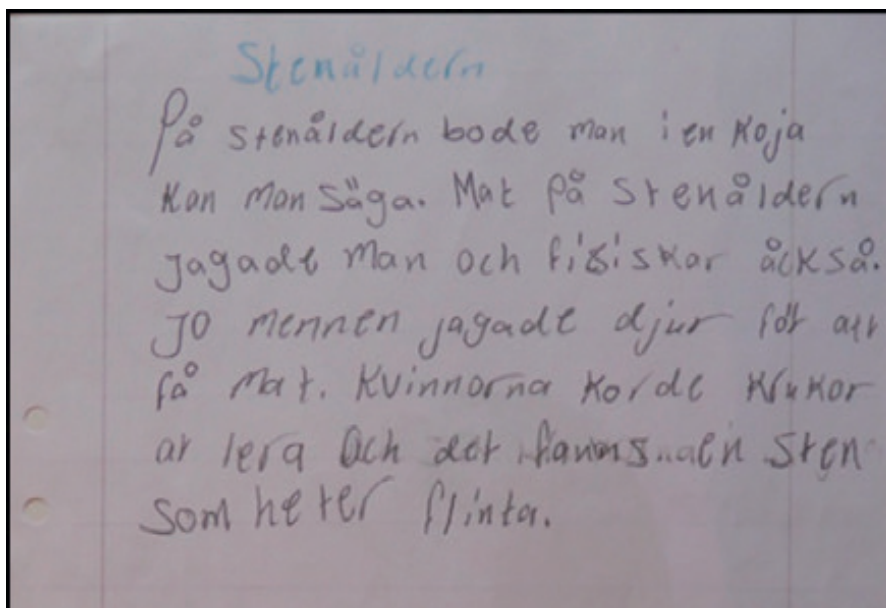 Stenåldern
På stenåldern bode man i en koja
kan man säga. Mat på stenåldern
jagade man och åckså.
JO mennen jagade djur för att
få mat. Kvinnorna korde krukor
av lera och det sten
som heter flinta.